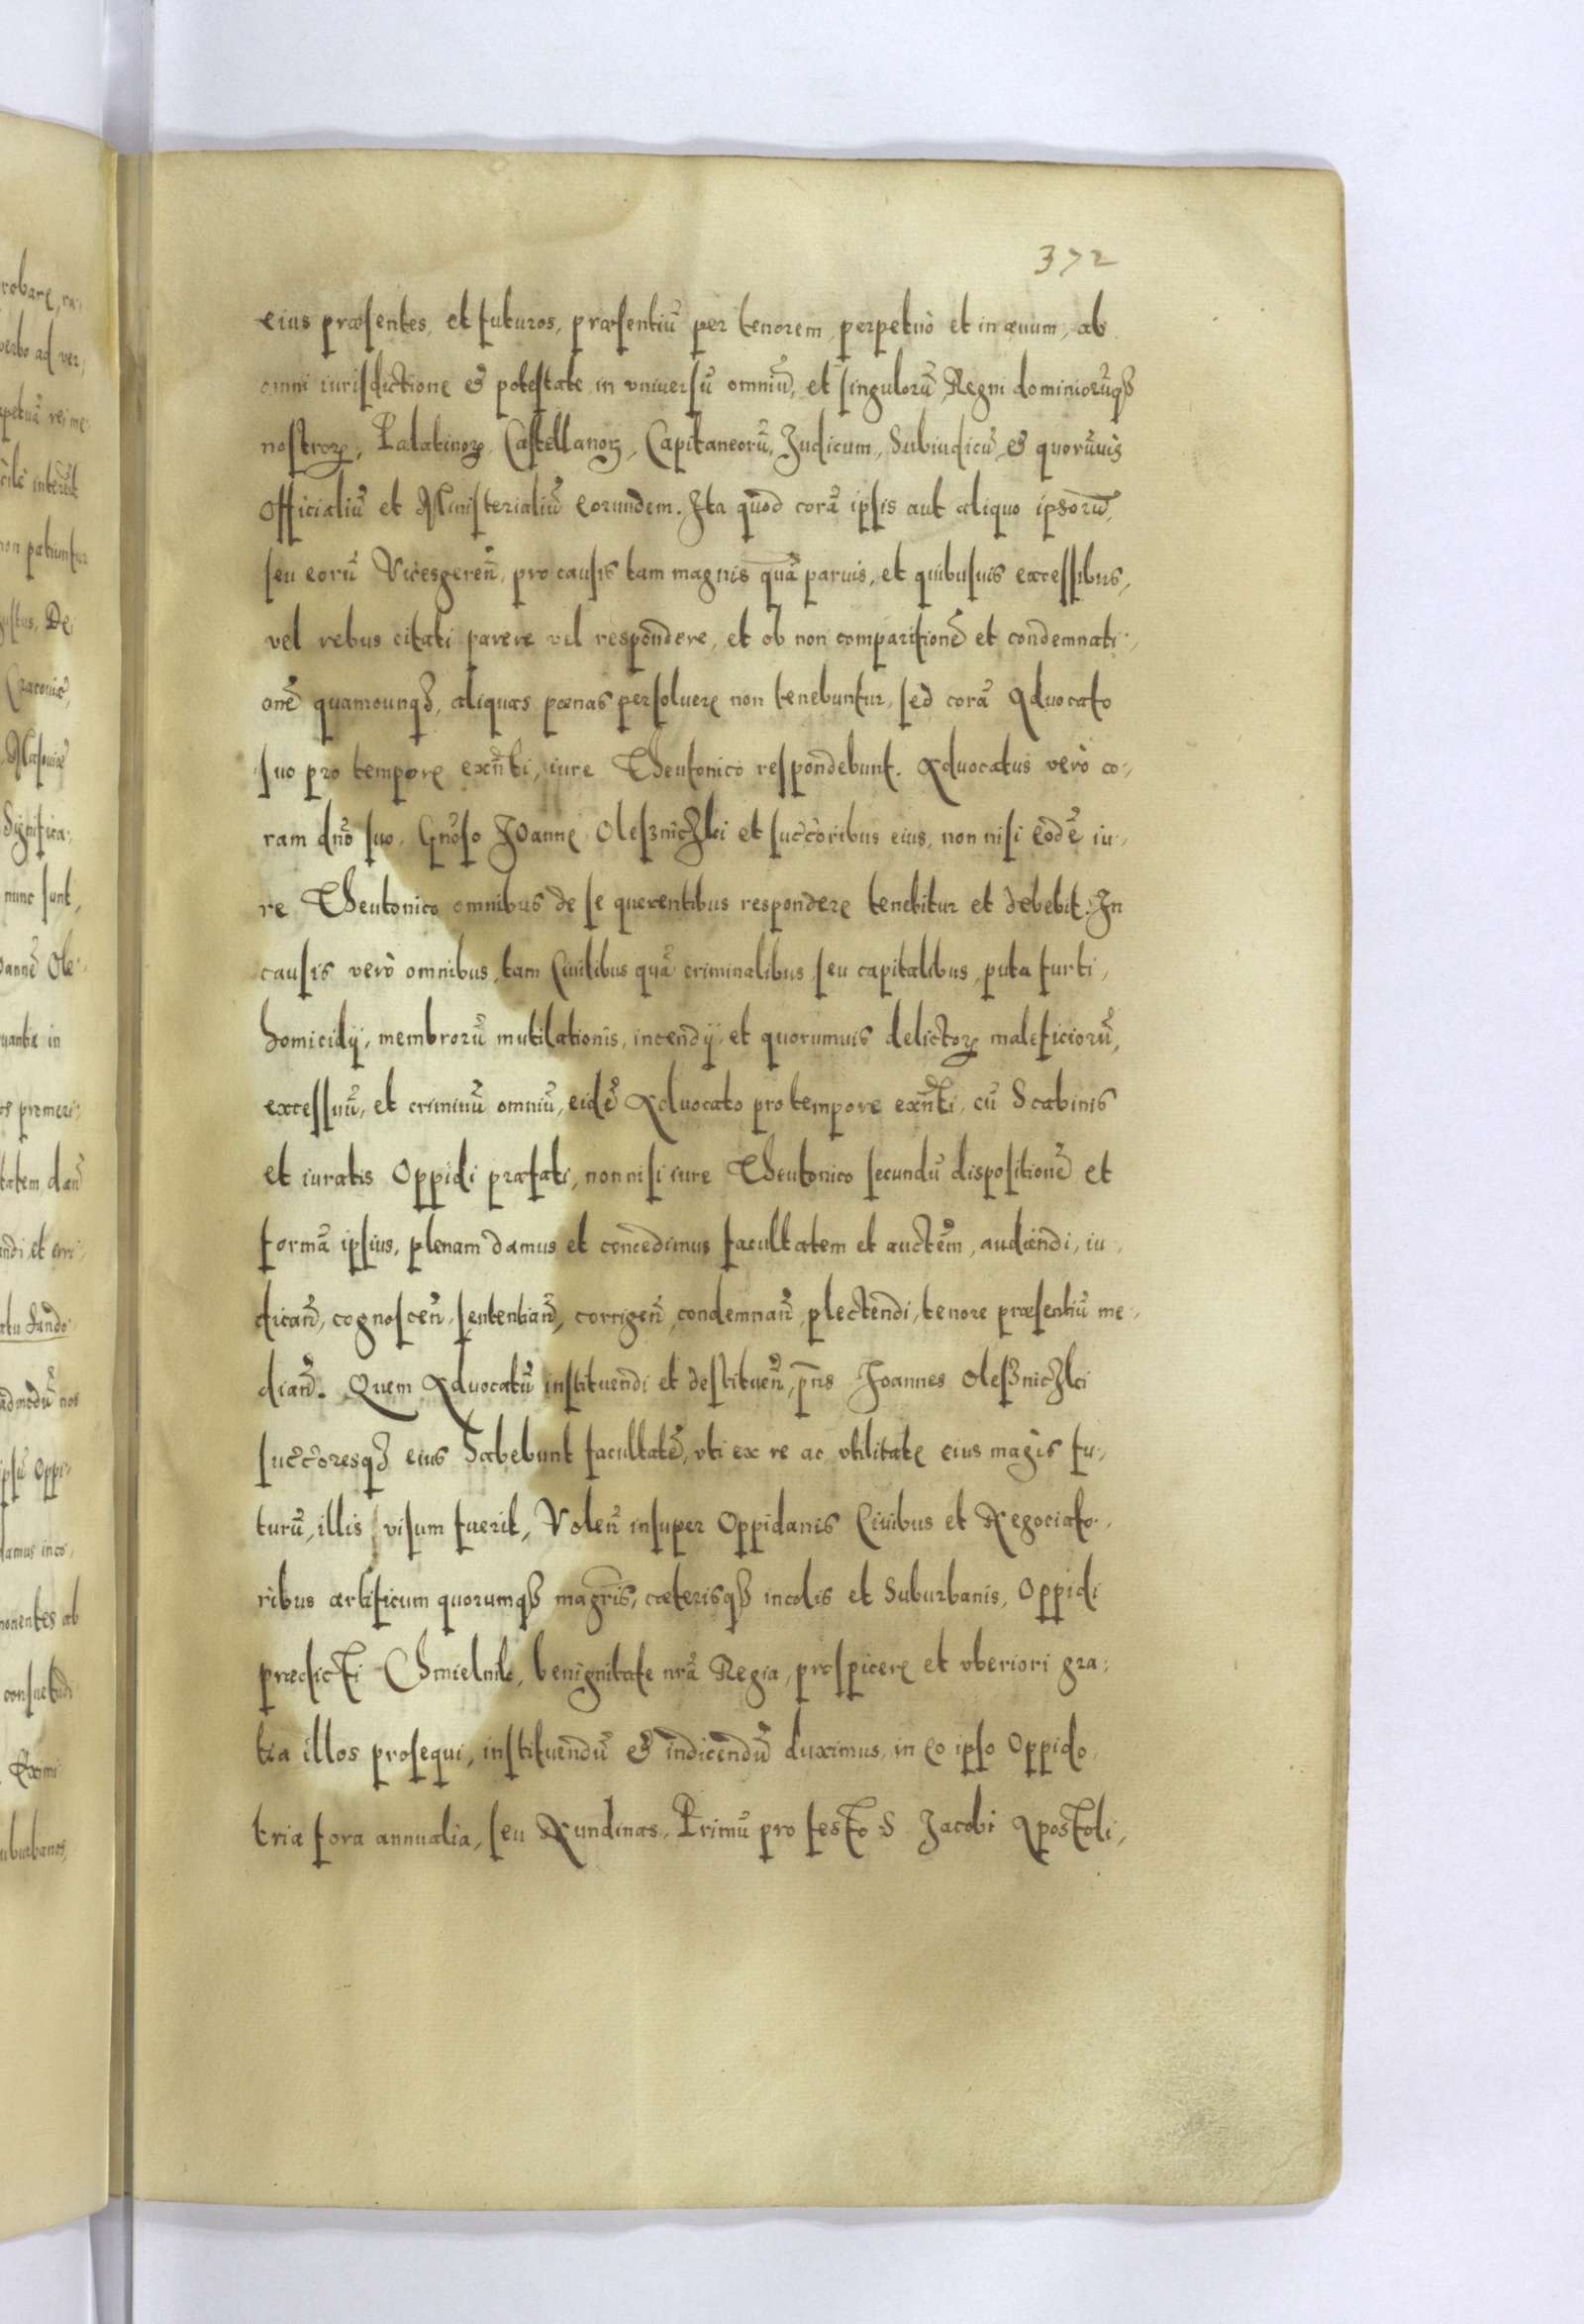 372
eius præsentes, et futuros, præsentiũ per tenorem perpetuò et in æuum, ab
omni iurisdictione & potestate in vniuersũ omniũ, et singulorũ Regni dominiorũqȝ
nostroꝝ, Palatinoꝝ Castellanoꝝ, Capitaneorũ, Judicum, Subiudicũ, & quorũuis
Officialiũ et Ministerialiũ eorundem. Ita quod corã ipsis aut aliquo ipsorũ,
seu eorũ Vicesgereñ, pro causis tam magnis quã paruis, et quibusuis excessibus,
vel rebus citati parere vel respondere, et ob non comparitionẽ et condemnati-
onẽ quamcunqȝ, aliquas pœnas persoluere non tenebuntur, sed corã Aduocato
suo pro tempore exñti, iure Theutonico respondebunt. Aduocatus verò co-
ram dño suo Gñoso Joanne Olesznichki et succ̃oribus eius, non nisi eodẽ iu-
re Theutonico omnibus de se querentibus respondere tenebitur et debebit. In
causis verò omnibus, tam Ciuilibus quã criminalibus seu capitalibus, puta furti,
homicidij, membrorũ mutilationis, incendij, et quorumuis delictoꝝ maleficiorũ,
excessuũ, et criminũ omniũ, eidẽ Aduocato pro tempore exñti, cũ Scabinis
et iuratis Oppidi præfati, non nisi iure Theutonico secundũ dispositionẽ et
formã ipsius, plenam damus et concedimus facultatem et auctẽm, audiendi, iu-
dicañ, cognosceñ, sententiañ, corrigeñ, condemnañ, plectendi, tenore præsentiũ me-
diañ. Quem Aduocatũ instituendi et destitueñ, pñs Joannes Olesznichki
succ̃oresqȝ eius habebunt facultatẽ, vti ex re ac vtilitate eius magis fu-
turũ, illis visum fuerit, Voleñ insuper Oppidanis Ciuibus et Negociato-
ribus artificum quorumqȝ magr̃is, cæterisqȝ incolis et Suburbanis, Oppidi
prædicti Chmielnik, benignitate nrã Regia, prospicere et vberiori gra-
tia illos prosequi, instituendũ & indicendũ duximus, in eo ipso Oppido
tria fora annualia, seu Nundinas, Primũ pro festo S Jacobi Apostoli,